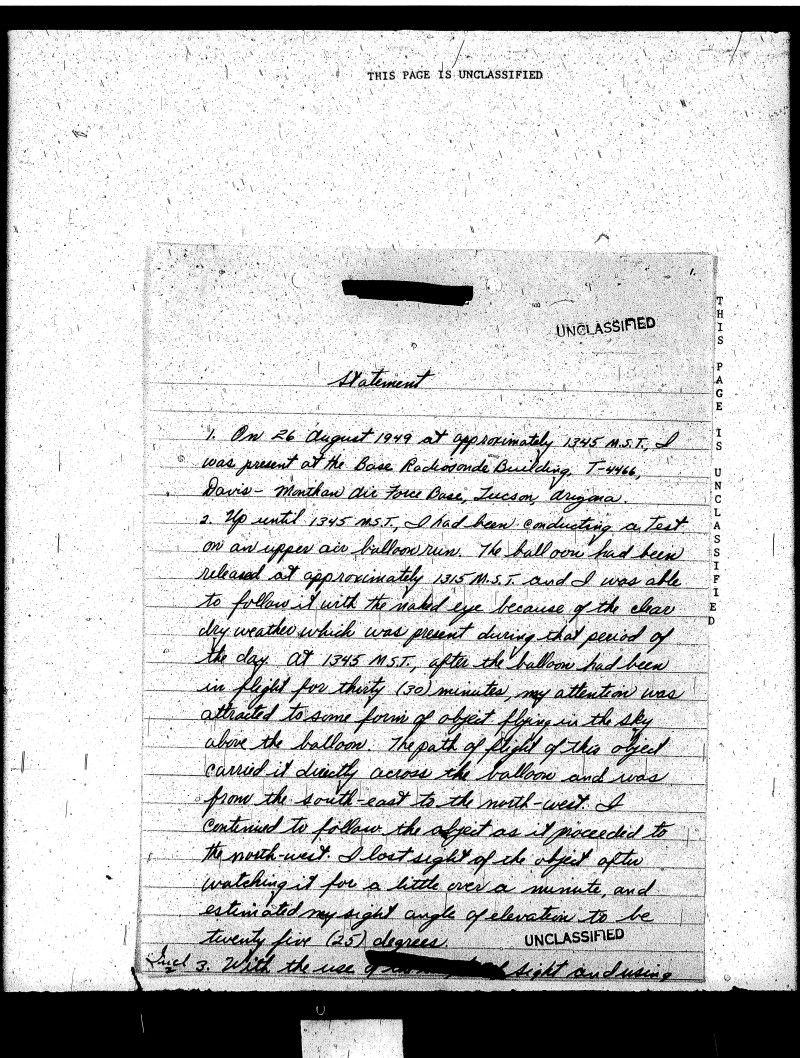 THIS PAGE IS UNCLASSIFIED
1.
UNCLASSIFIED
Statement
1. On 26 August 1949 at approximately 1345 M.S.T., I
was present at the Base Radiosonde Building T-4466,
Davis-Monthan Air Force Base, Tucson, Arizona.
2. Up until 1345 M.S.T., I had been conducting a test
on an upper air balloon run. The balloon had been
released at approximately 1315 M.S.T. and I was able
to follow it with the naked eye because of the clear
dry weather which was present during that period of
the day. At 1345 M.S.T., after the balloon had been
in flight for thirty (30) minutes, my attention was
attracted to some form of object flying in the sky
above the balloon. The path of flight of this object
carried it directly across the balloon and was
from the south-east to the north-west. I
continued to follow the object as it proceeded to
the north-west. I lost sight of the object after
watching it for a little over a minute, and
estimated my sight angle of elevation to be
twenty five (25) degrees.
UNCLASSIFIED
Incl 2
3. With the use of sight and using
THIS PAGE IS UNCLASSIFIED